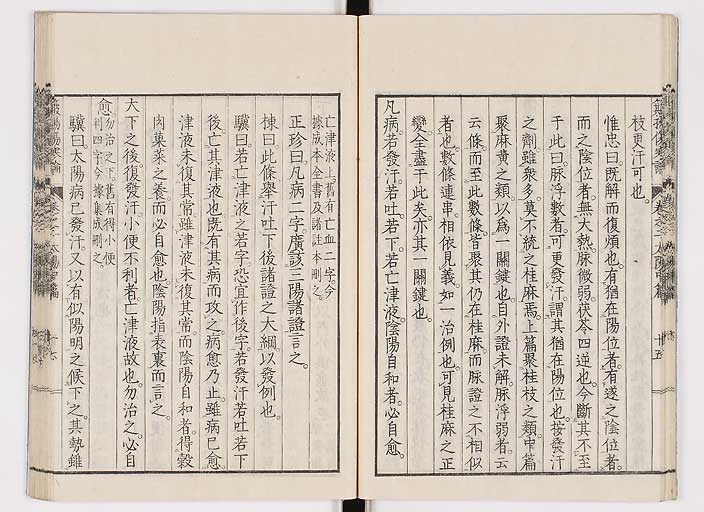 枝更汗可也。
惟忠曰。既解而復煩也。有猶在陽位者。有遂之陰位者。
而之陰位者。無大熱。脉微弱。茯苓四逆也。今斷其不至
于此曰。脉浮數者。可更發汗。謂其猶在陽位也。按發汗
之劑雖衆多。莫不統之桂麻焉。上篇聚桂枝之類。中篇
聚麻黄之類。以為一關鍵也。自外證未解。脉浮弱者。云
云條。而至此數條。皆聚其仍在桂麻而脉證之不相似
者也。數條連串。相依見義。如一治例也。可見桂麻之正
變。全盡于此矣。亦其一關鍵也。
凡病若發汗。若吐。若下。若亡津液。陰陽自和者。必自愈。
亡津液上。舊有亡血二字。今
據成本全書及諸註本刪之。
正珍曰。凡病二字。廣該三陽諸證言之。
棟曰。此條舉汗吐下後諸證之大綱。以發例也。
驥曰。若亡津液之若字。恐宜作後字。若發汗若吐若下
後。亡其津液也。既有其病而攻之。病愈乃止。雖病已愈。
津液未復其常。雖津液未復其常。而陰陽自和者。得穀
肉菓菜之養。而必自愈也。陰陽指表裏而言之。
大下之後。復發汗。小便不利者。亡津液故也。勿治之。必自
愈。
勿治之下。舊有得小便
利四字。今據集成刪之。
驥曰。太陽病已發汗。又以有似陽明之候下之。其勢雖
太陽中篇
廿五
太陽中篇